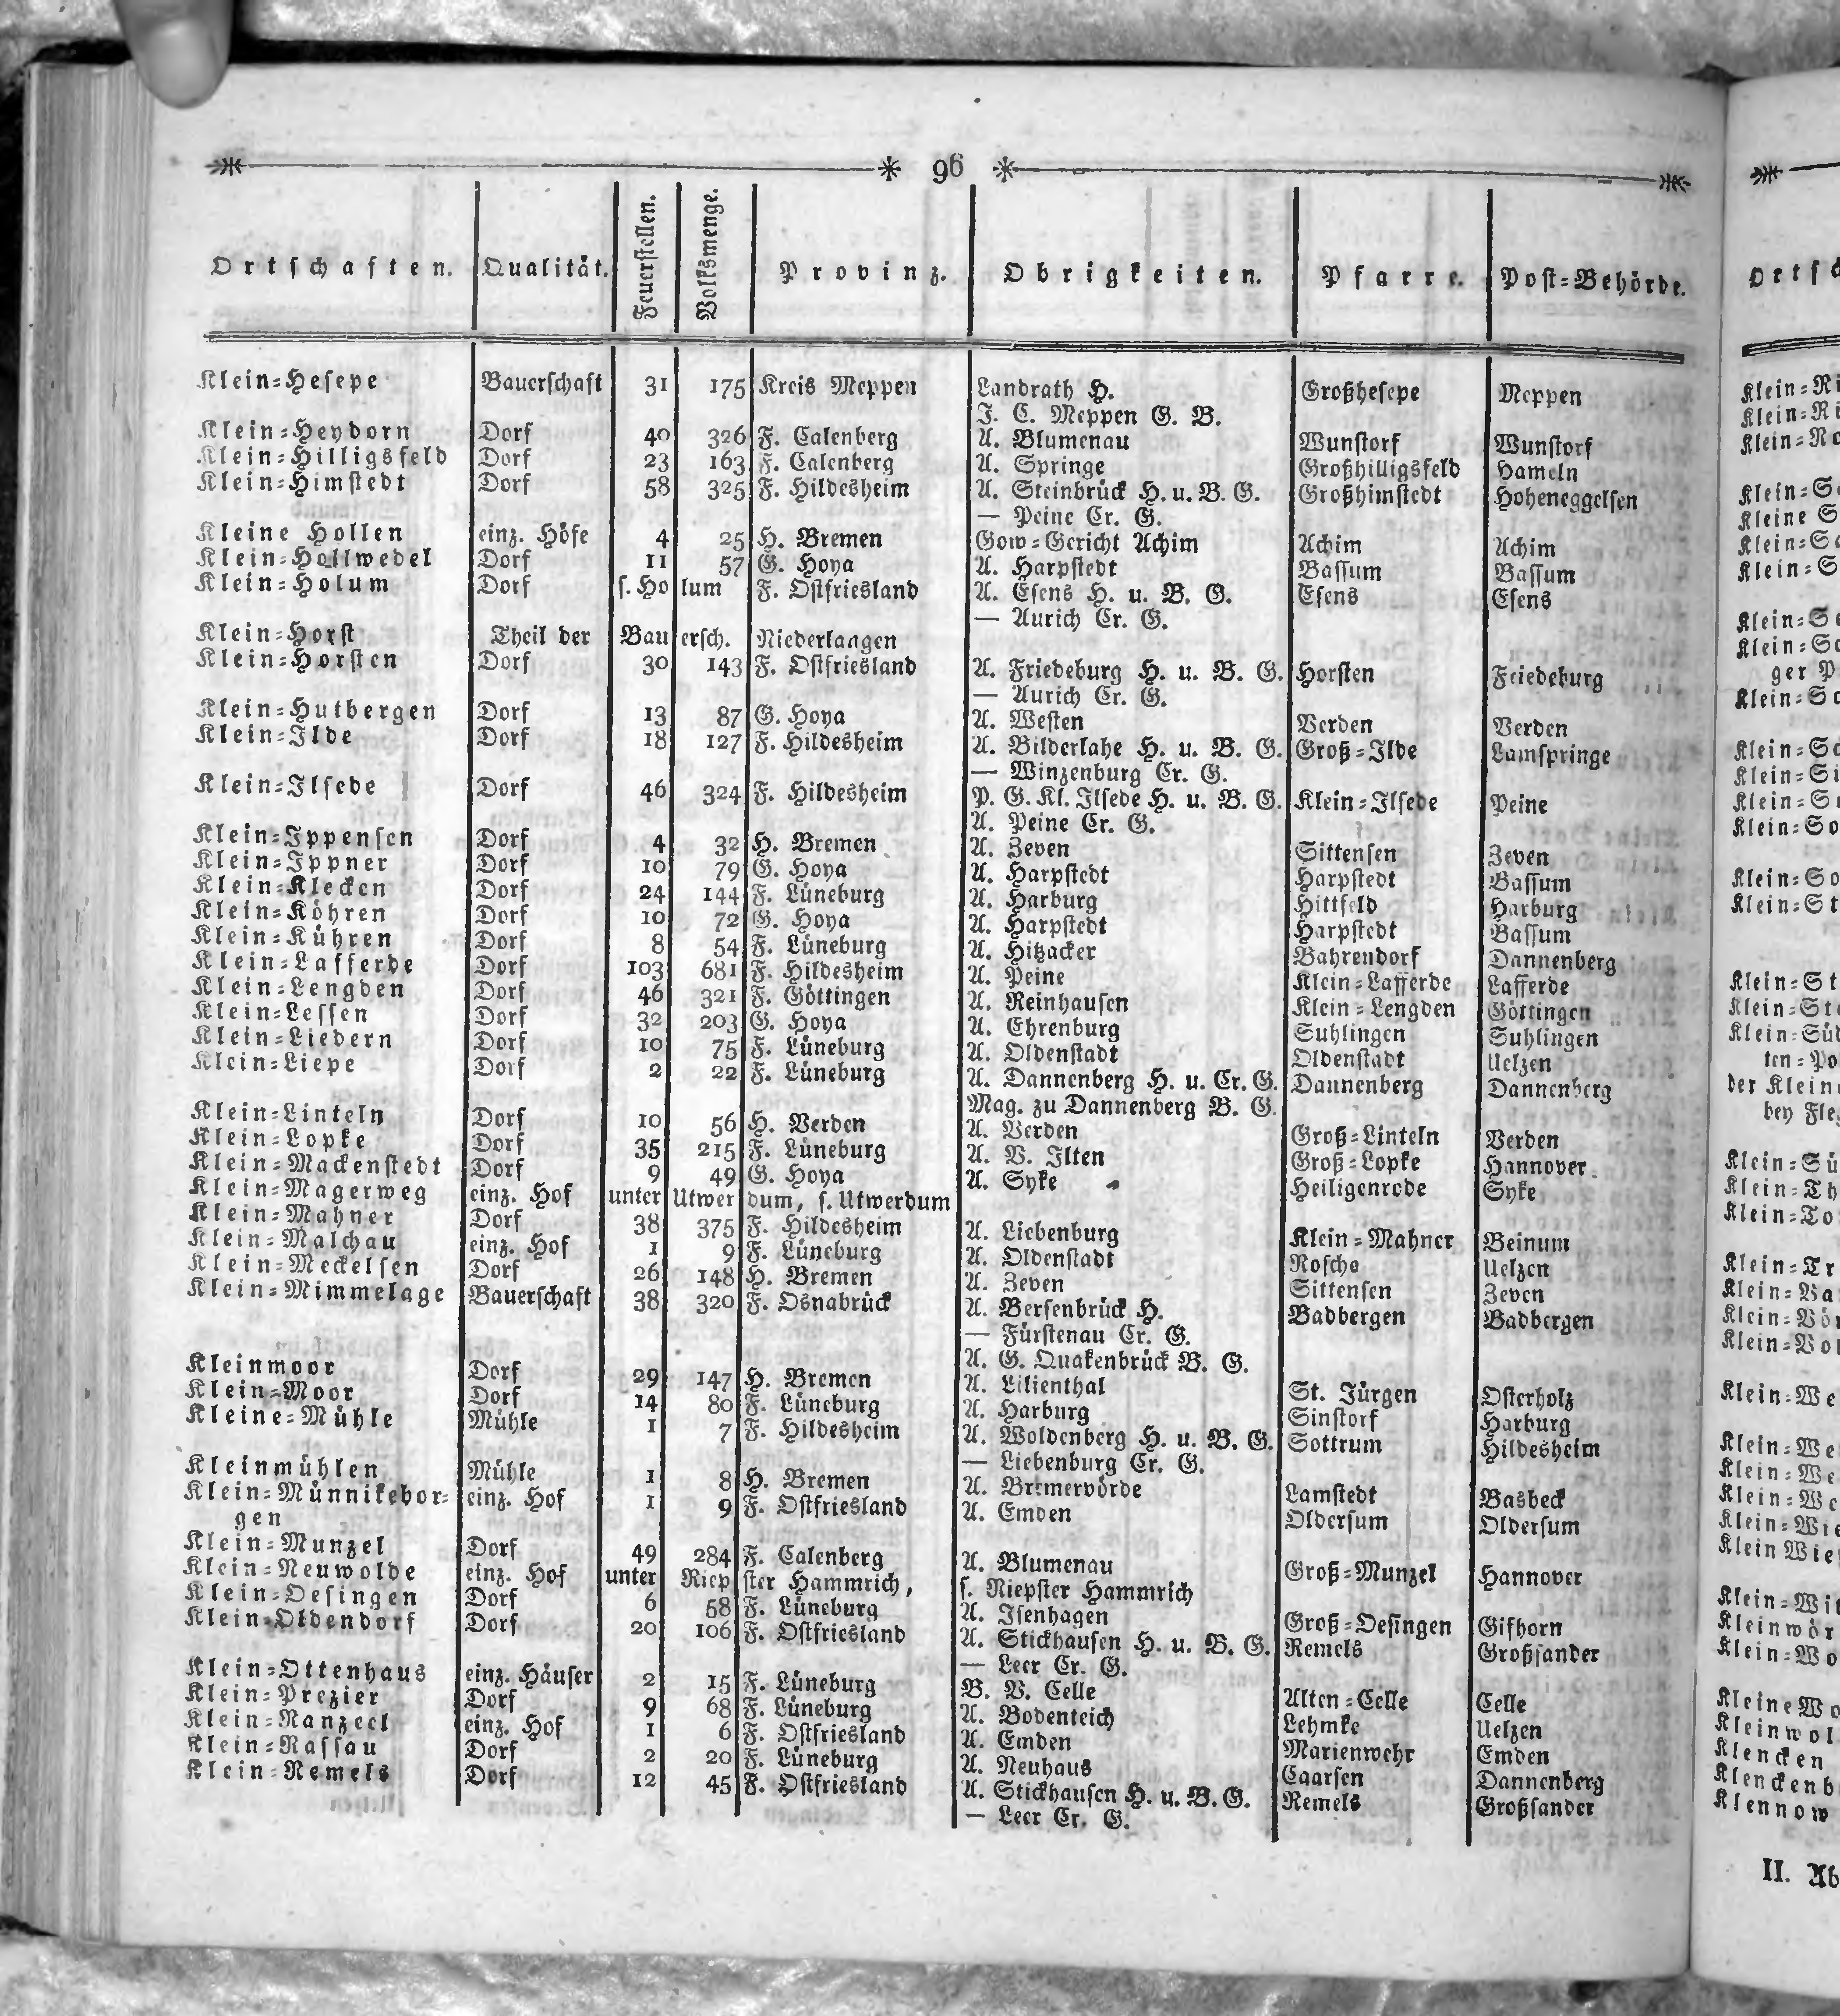 96
Ortschaften. Qualität. Feuerstellen. Volksmenge. Provinz. Obrigkeiten. Pfarre. Post-Behörde.
Klein-Hesepe Bauerschaft 31 175 Kreis Meppen Landrath H. Großhesepe Meppen
J. C. Meppen G. B.
Klein-Heydorn Dorf 40 326 F. Calenberg A. Blumenau Wunstorf Wunstorf
Klein-Hilligsfeld Dorf 23 163 F. Calenberg A. Springe Großhilligsfeld Hameln
Klein-Himstedt Dorf 58 325 F. Hildesheim A. Steinbrück H. u. B. G. Großhimstedt Hoheneggelsen
— Peine Cr. G.
Kleine Hollen einz. Höfe 4 25 H. Bremen Gow-Gericht Achim Achim Achim
Klein-Hollwedel Dorf 11 57 G. Hoya A. Harpstedt Bassum Bassum
Klein-Holum Dorf s. Holum F. Ostfriesland A. Esens H. u. B. G. Esens Esens
— Aurich Cr. G.
Klein-Horst Theil der Bauersch. Niederlangen
Klein-Horsten Dorf 30 143 F. Ostfriesland A. Friedeburg H. u. B. G. Horsten Friedeburg
— Aurich Cr. G.
Klein-Hutbergen Dorf 13 87 G. Hoya A. Westen Verden Verden
Klein-Ilde Dorf 18 127 F. Hildesheim A. Bilderlahe H. u. B. G. Groß-Ilde Lamspringe
— Winzenburg Cr. G.
Klein-Ilsede Dorf 46 324 F. Hildesheim P. G. Kl. Ilsede H. u. B. G. Klein-Ilsede Peine
A. Peine Cr. G.
Klein-Ippensen Dorf 4 32 H. Bremen A. Zeven Sittensen Zeven
Klein-Ippner Dorf 10 79 G. Hoya A. Harpstedt Harpstedt Bassum
Klein-Klecken Dorf 24 144 F. Lüneburg A. Harburg Hittfeld Harburg
Klein-Köhren Dorf 10 72 G. Hoya A. Harpstedt Harpstedt Bassum
Klein-Kühren Dorf 8 54 F. Lüneburg A. Hitzacker Bahrendorf Dannenberg
Klein-Lafferde Dorf 103 681 F. Hildesheim A. Peine Klein-Lafferde Lafferde
Klein-Lengden Dorf 46 321 F. Göttingen A. Reinhausen Klein-Lengden Göttingen
Klein-Lessen Dorf 32 203 G. Hoya A. Ehrenburg Suhlingen Suhlingen
Klein-Liedern Dorf 10 75 F. Lüneburg A. Oldenstadt Oldenstadt Uelzen
Klein-Liepe Dorf 2 22 F. Lüneburg A. Dannenberg H. u. Cr. G. Dannenberg Dannenberg
Mag. zu Dannenberg B. G.
Klein-Linteln Dorf 10 56 H. Verden A. Verden Groß-Linteln Verden
Klein-Lopke Dorf 35 215 F. Lüneburg A. V. Ilten Groß-Lopke Hannover
Klein-Mackenstedt Dorf 9 49 G. Hoya A. Syke Heiligenrode Syke
Klein-Magerweg einz. Hof unter Utwerdum, s. Utwerdum
Klein-Mahner Dorf 38 375 F. Hildesheim A. Liebenburg Klein-Mahner Beinum
Klein-Malchau einz. Hof 1 9 F. Lüneburg A. Oldenstadt Rosche Uelzen
Klein-Meckelsen Dorf 26 148 H. Bremen A. Zeven Sittensen Zeven
Klein-Mimmelage Bauerschaft 38 320 F. Osnabrück A. Bersenbrück H. Badbergen Badbergen
— Fürstenau Cr. G.
A. G. Quakenbrück B. G.
Kleinmoor Dorf 29 147 H. Bremen A. Lilienthal St. Jürgen Osterholz
Klein-Moor Dorf 14 80 F. Lüneburg A. Harburg Sinstorf Harburg
Kleine-Mühle Mühle 1 7 F. Hildesheim A. Woldenberg H. u. B. G. Sottrum Hildesheim
— Liebenburg Cr. G.
Kleinmühlen Mühle 1 8 H. Bremen A. Bremervörde Lamstedt Basbeck
Klein-Münnikebor- einz. Hof 1 9 F. Ostfriesland A. Emden Oldersum Oldersum
gen
Klein-Munzel Dorf 49 284 F. Calenberg A. Blumenau Groß-Munzel Hannover
Klein-Neuwolde einz. Hof unter Riepster Hammrich, s. Riepster Hammrich
Klein-Oesingen Dorf 6 58 F. Lüneburg A. Isenhagen Groß-Oesingen Gifhorn
Klein-Oldendorf Dorf 20 106 F. Ostfriesland A. Stickhausen H. u. B. G. Remels Großsander
— Leer Cr. G.
Klein-Ottenhaus einz. Häuser 2 15 F. Lüneburg B. V. Celle Alten-Celle Celle
Klein-Prezier Dorf 9 68 F. Lüneburg A. Bodenteich Lehmke Uelzen
Klein-Ranzeel einz. Hof 1 6 F. Ostfriesland A. Emden Marienwehr Emden
Klein-Rassau Dorf 2 20 F. Lüneburg A. Neuhaus Caarsen Dannenberg
Klein-Remels Dorf 12 45 F. Ostfriesland A. Stickhausen H. u. B. G. Remels Großsander
— Leer Cr. G.
II.